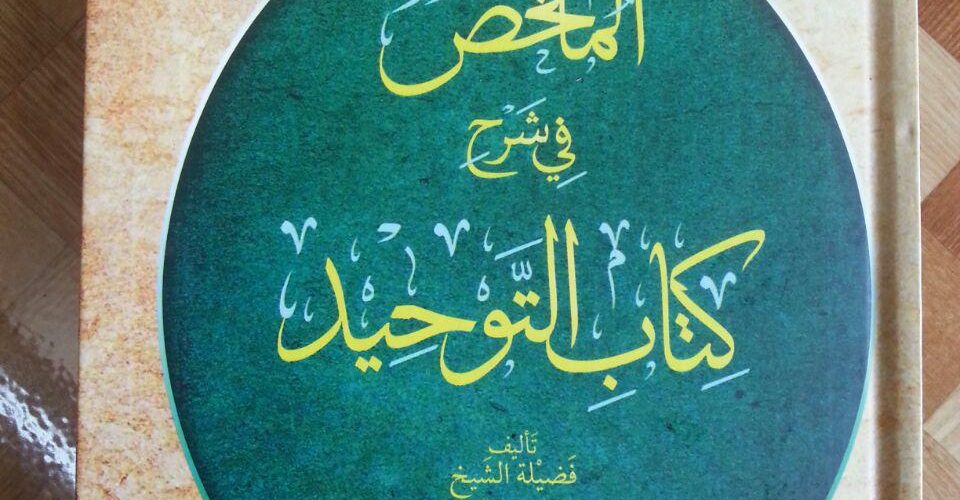 الملخص
في شرح
كتاب التوحيد
تأليف
فضيلة الشيخ